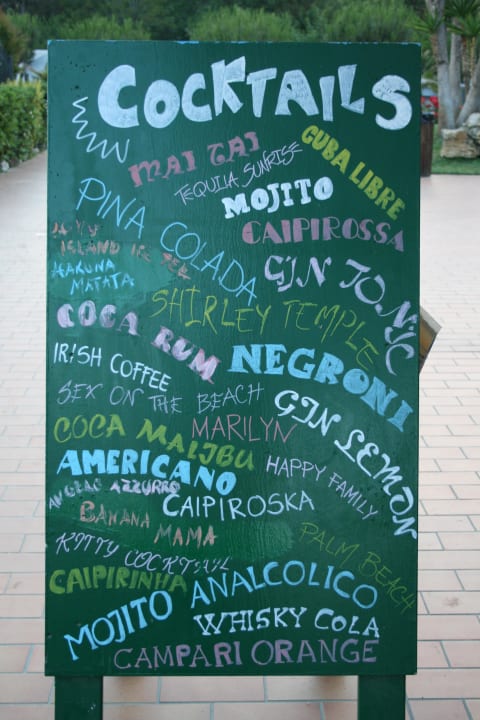 COCKTAILS
MAI TAI
TEQUILA SUNRISE
CUBA LIBRE
MOJITO
PINA COLADA
CAIPIROSSA
ISLAND ICE TEA
HAKUNA
MATATA
GIN TONIC
SHIRLEY TEMPLE
COCA RUM
NEGRONI
IRISH COFFEE
SEX ON THE BEACH
GIN LEMON
COCA MALIBU
MARILYN
AMERICANO
HAPPY FAMILY
ANGELO AZZURRO
CAIPIROSKA
BANANA MAMA
KITTY COCKTAIL
PALM BEACH
CAIPIRINHA
MOJITO ANALCOLICO
WHISKY COLA
CAMPARI ORANGE